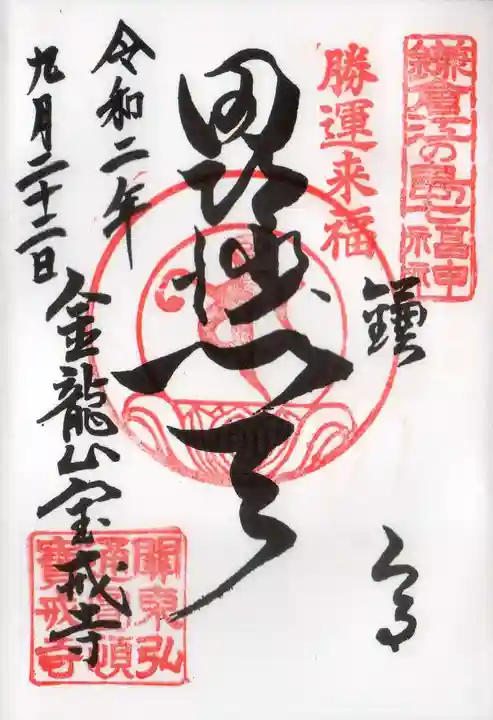 鎌倉江の島七福神
勝運来福
鎌倉
毘沙門天
令和二年
九月二十二日
金龍山宝戒寺
關東弘
通智頓
寶戒寺